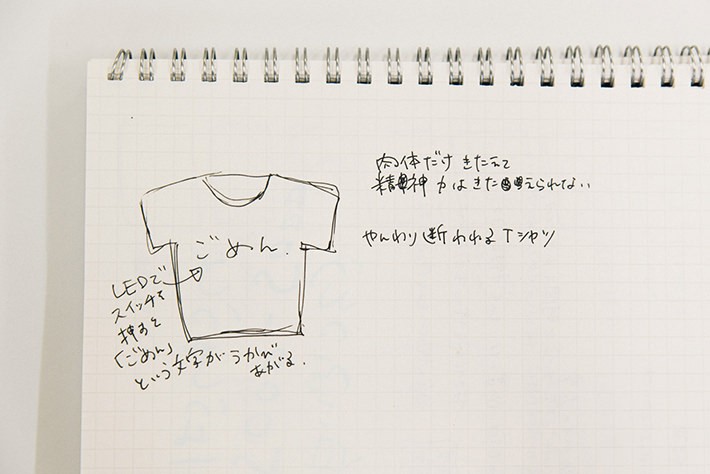 肉体だけきたえて
精神力はきたえられない
やんわり断われるTシャツ
ごめん.
LEDで
スイッチを
押すと
「ごめん」
という文字がうかび
あがる.